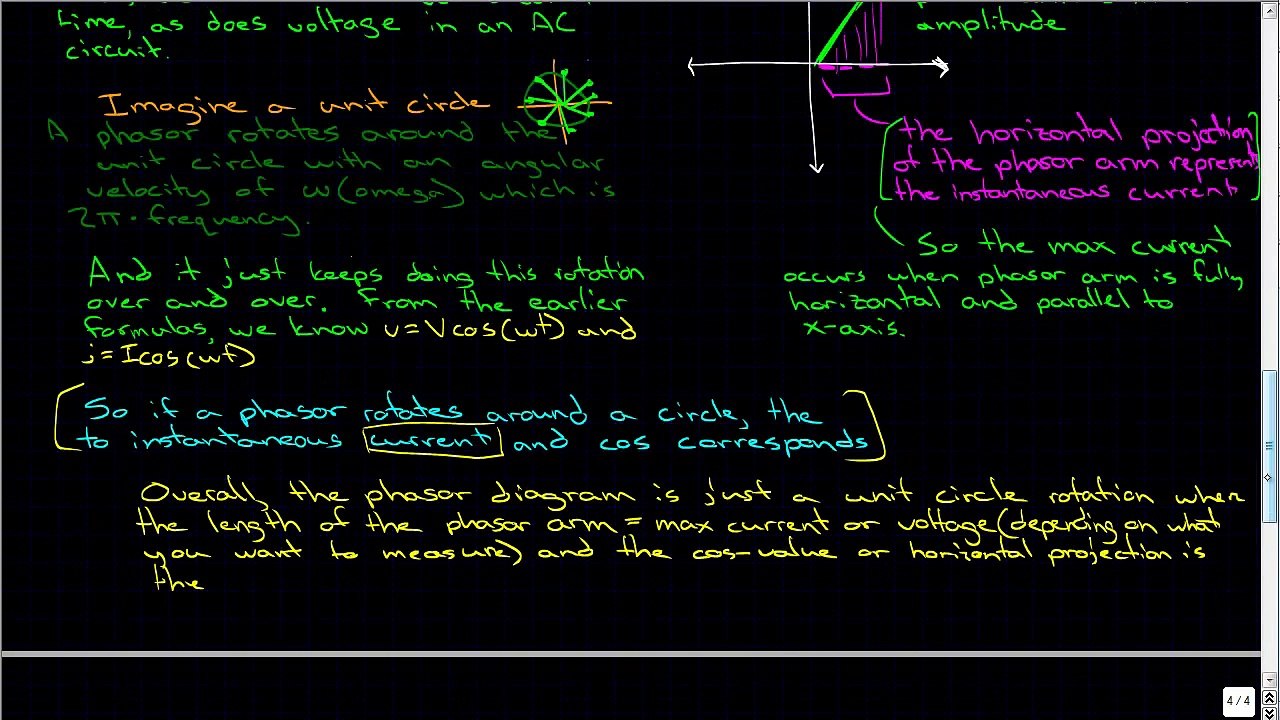 time, as does voltage in an AC
circuit.
Imagine a unit circle
A phasor rotates around the
unit circle with an angular
velocity of ω(omega) which is
2π · frequency.
And it just keeps doing this rotation
over and over. From the earlier
formulas, we know v=Vcos(wt) and
i=Icos(wt)
amplitude
the horizontal projection
of the phasor arm represents
the instantaneous current
So the max current
occurs when phasor arm is fully
horizontal and parallel to
x-axis.
So if a phasor rotates around a circle, the
to instantaneous current and cos corresponds
Overall, the phasor diagram is just a unit circle rotation where
the length of the phasor arm = max current or voltage (depending on what
you want to measure) and the cos-value or horizontal projection is
the
4/4